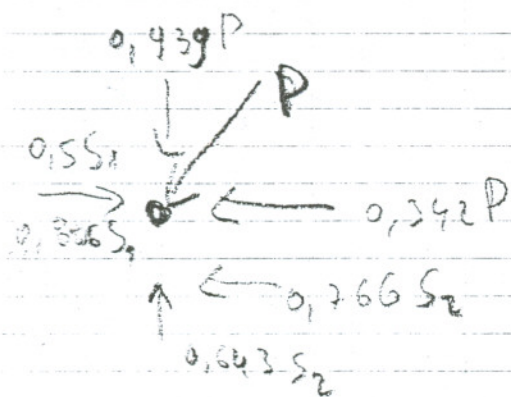 0,939P
P
0,5S₁
0,342P
0,766S₂
0,643S₂